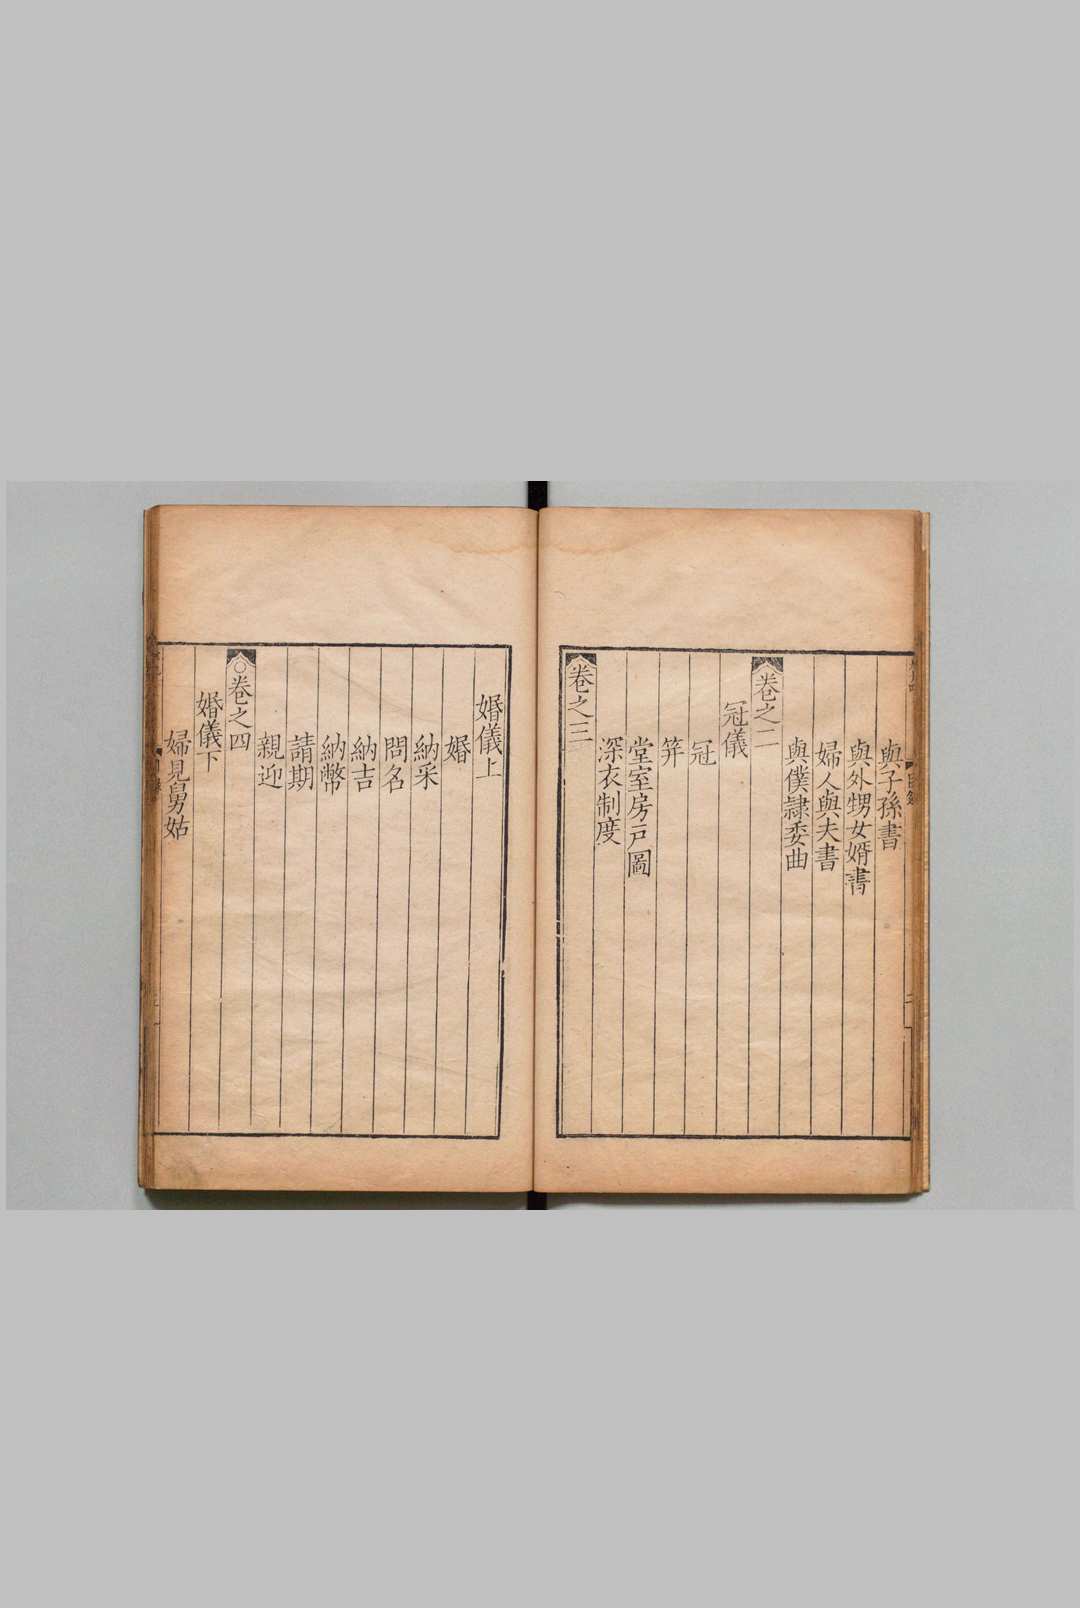 與子孫書
與外甥女婿書
婦人與夫書
與僕隷委曲
卷之二
冠儀
冠
笄
堂室房戸圖
深衣制度
卷之三
婚儀上
婚
納采
問名
納吉
納幣
請期
親迎
卷之四
婚儀下
婦見舅姑